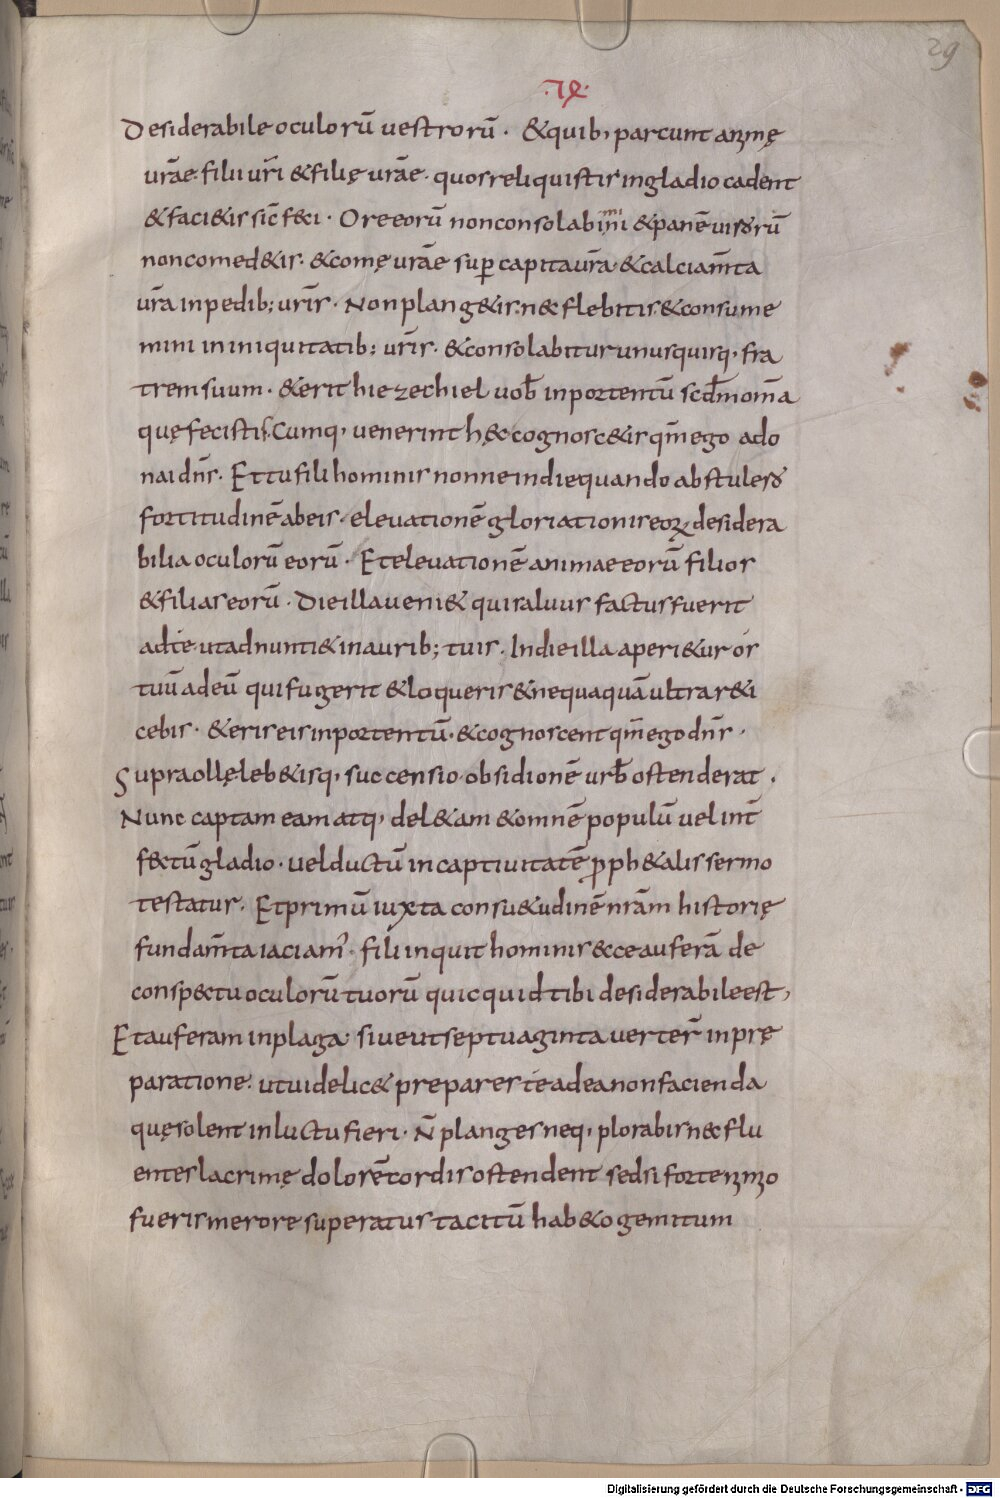 29
·IX·
Desiderabile oculorū uestrorū · & quib, parcunt animę
urāe · filii ur̄i & filię urāe · quos reliquistis in gladio cadent
& faci&is sic̄ feci · Ore eorū non consolabimini & panē uirorū
non comed&is · & comę urāe sup capita ur̄a & calciam̄ta
ur̄a in pedib; ur̄is · Non plang&is · nec flebitis · & consume
mini in iniquitatib; ur̄is · & consolabitur unusquisq, fra
trem suum · & erit hiezechiel uob̄ in portentū scd̄m om̄a
quę fecistis · Cumq, uenerint hęc cognosc&is qm̄ ego ado
nai dn̄s · Et tu fili hominis nonne in die quando abstulero
fortitudinē ab eis · eleuationē gloriationis eoꝝ desidera
bilia oculorū eorū · Et eleuationē animae eorū filios
& filias eorū · Die illa ueni& qui saluus factus fuerit
ad te · ut adnunti& in aurib; tuis · In die illa aperi&ur os
tuū ad eū qui fugerit & loqueris & nequaquā ultra r&i
cebis · & eris eis in portentū · & cognoscent qm̄ ego dn̄s ·
Supra ollę leb&isq, succensio obsidionē urb̄ ostenderat ·
Nunc captam eam atq, del&am & omnē populū uel int̄
fectū gladio · uel ductū in captiuitatē pph&alis sermo
testatur · Et primū iuxta consu&udinē nr̄am historię
fundam̄ta iaciam' · fili inquit hominis ecce auferā de
conspectu oculorū tuorū quicquid tibi desiderabile est,
Et auferam in plaga · siue ut septuaginta uerter̄ in prę
paratione · ut uidelic& prepares te ad ea non facienda
quę solent in luctu fieri · N̄ planges neq, plorabis nec flu
entes lacrimę dolorē cordis ostendent sed si forte imo
fueris merore superatus tacitū hab&o gemitum
Digitalisierung gefördert durch die Deutsche Forschungsgemeinschaft - DFG